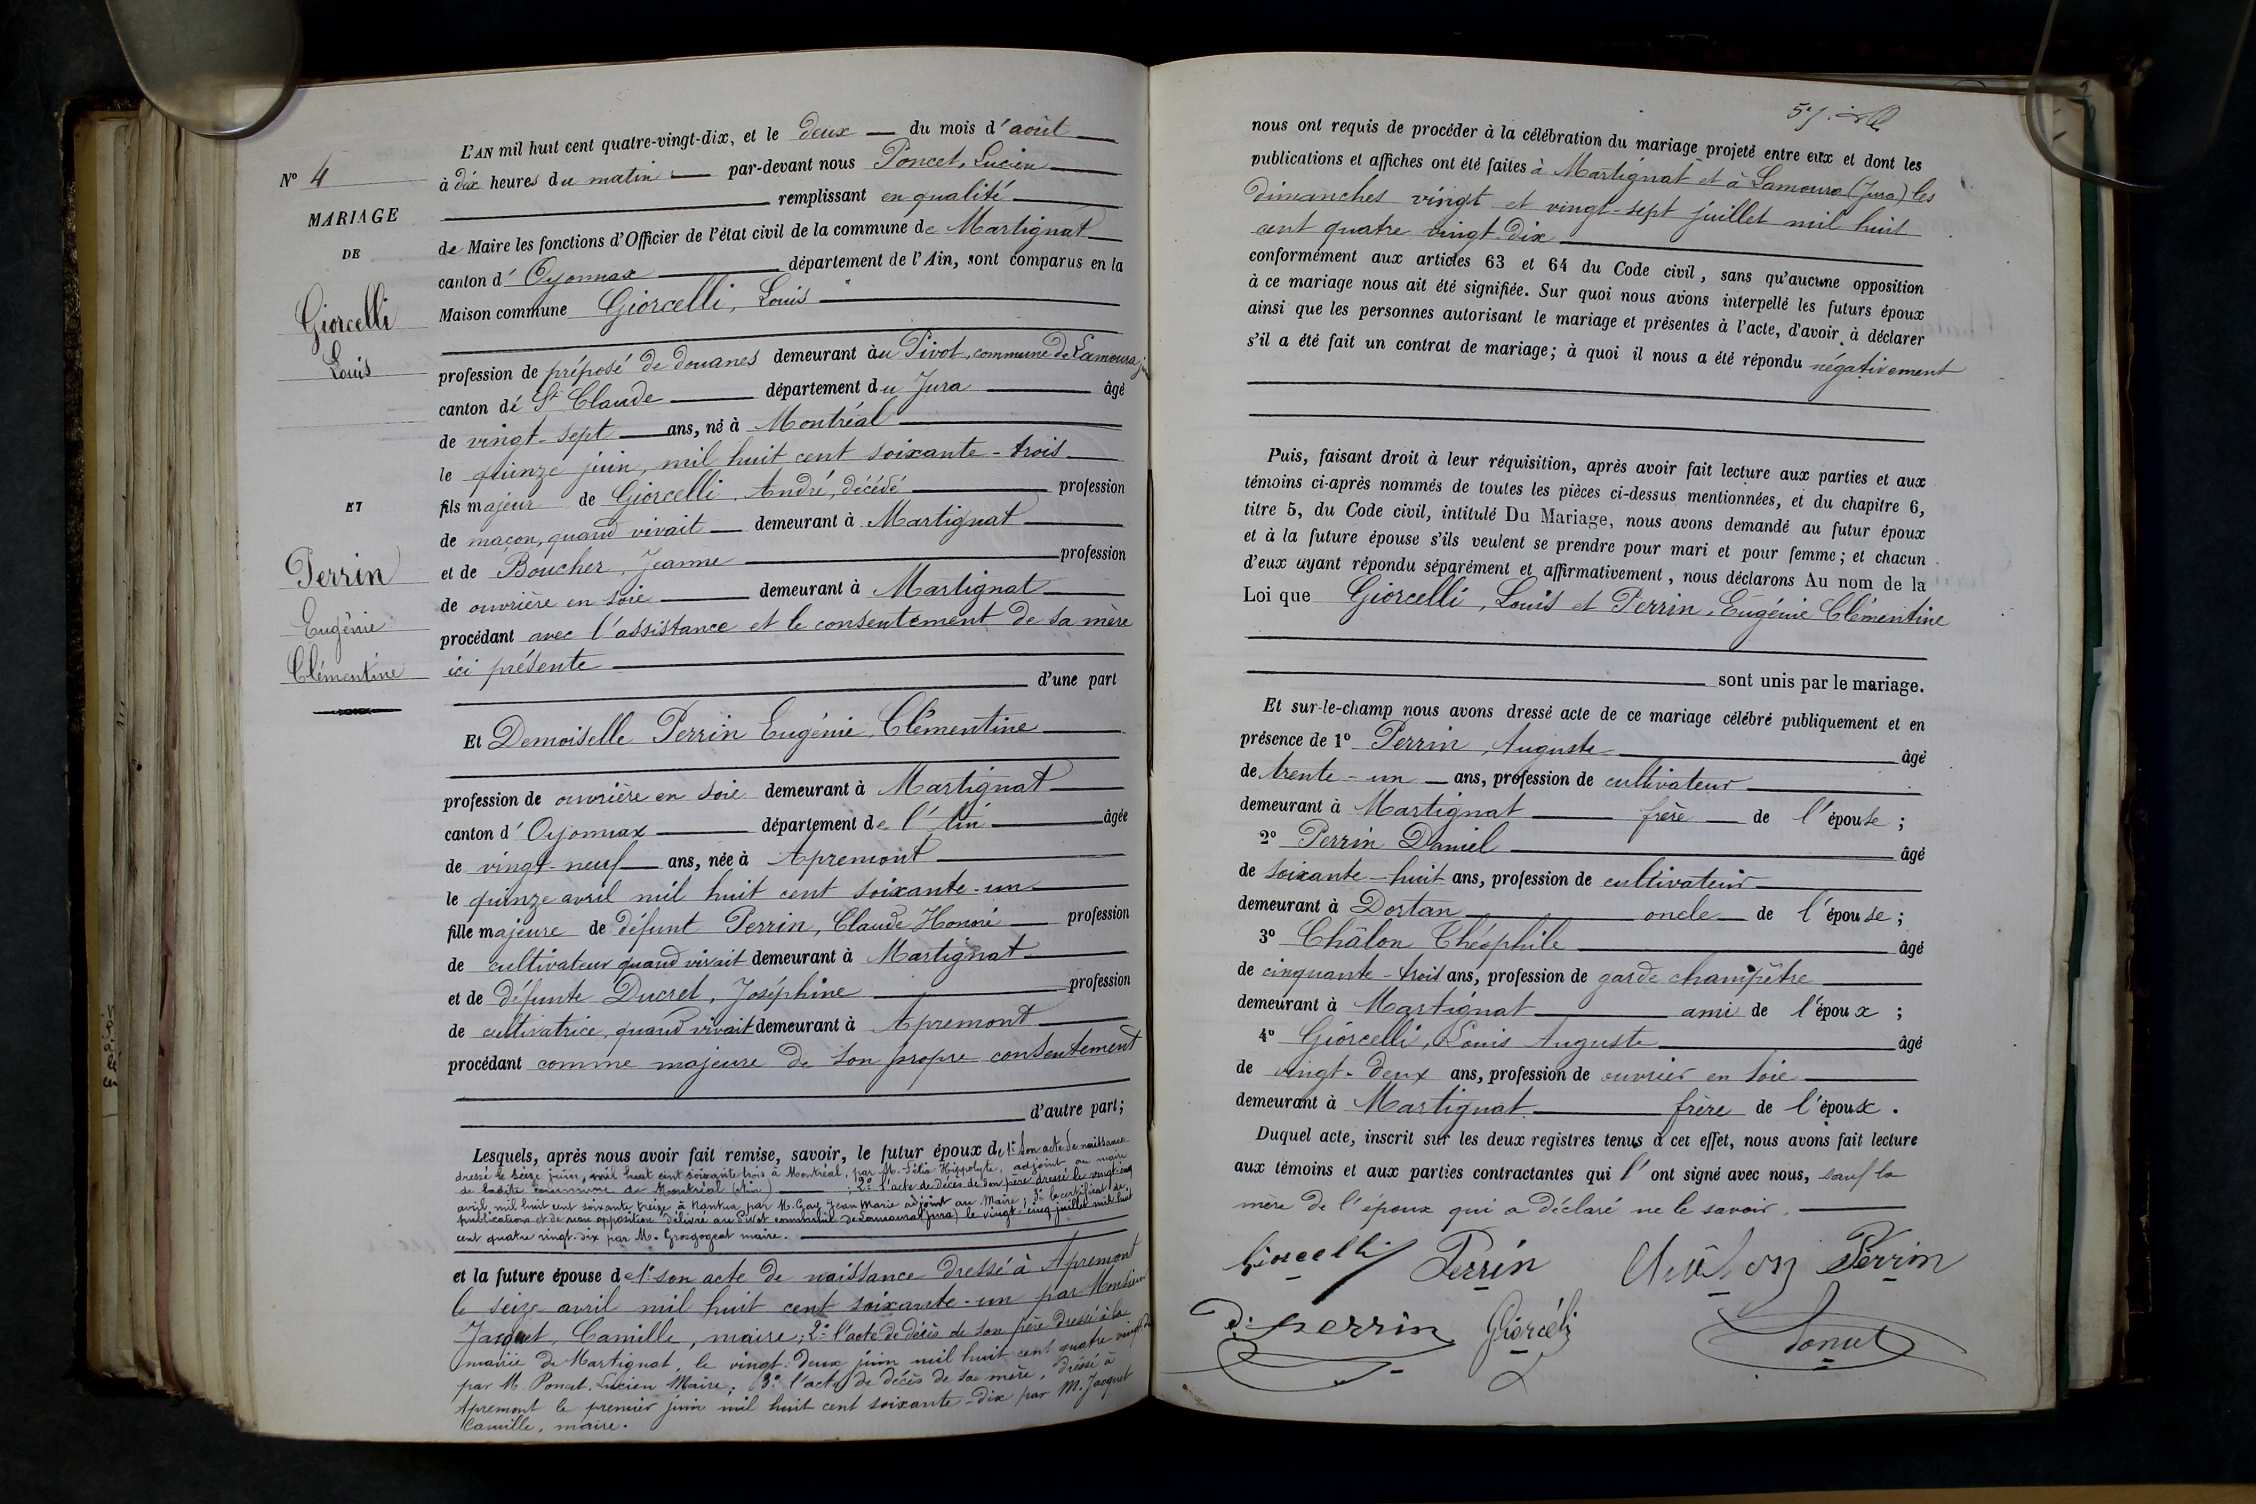 L'AN mil huit cent quatre-vingt-dix, et le deux du mois d'août
N° 4
à dix heures du matin par-devant nous Poncet, Lucien
remplissant en qualité
MARIAGE
de Maire les fonctions d'Officier de l'état civil de la commune de Martignat
DE
canton d'Oyonnax département de l'Ain, sont comparus en la
Giorcelli
Maison commune Giorcelli, Louis
Louis
profession de préposé de douanes demeurant au Pivot, commune de Lamoura,
canton de St Claude département du Jura âgé
de vingt-sept ans, né à Montréal
le quinze juin, mil huit cent soixante-trois
fils majeur de Giorcelli, André, décédé profession
ET
de maçon, quand vivait demeurant à Martignat
et de Boucher, Jeanne profession
Perrin
de ouvrière en soie demeurant à Martignat
Eugénie
procédant avec l'assistance et le consentement de sa mère
Clémentine
ici présente
d'une part
Et Demoiselle Perrin Eugénie, Clémentine
profession de ouvrière en soie demeurant à Martignat
canton d'Oyonnax département de l'Ain âgée
de vingt-neuf ans, née à Apremont
le quinze avril mil huit cent soixante-un
fille majeure de défunt Perrin, Claude Honoré profession
de cultivateur quand vivait demeurant à Martignat
et de défunte Ducret, Joséphine profession
de cultivatrice, quand vivait demeurant à Apremont
procédant comme majeure de son propre consentement
d'autre part;
Lesquels, après nous avoir fait remise, savoir, le futur époux de 1° son acte de naissance
dressé le seize juin, mil huit cent soixante trois à Montréal, par M. Félix Hippolyte, adjoint au maire
de ladite commune de Montréal (Ain) ; 2° l'acte de décès de son père dressé le vingt-cinq
avril mil huit cent soixante treize à Nantua par M. Gay Jean Marie adjoint au Maire; 3° le certificat de
publications et de non opposition délivré au Pivot commune de Lamoura (Jura) le vingt-cinq juillet mil huit
cent quatre vingt-dix par M. Grosgogeat maire.
et la future épouse de 1° son acte de naissance dressé à Apremont
le seize avril mil huit cent soixante-un par Monsieur
Jacquet, Camille, maire; 2° l'acte de décès de son père dressé à la
mairie de Martignat, le vingt-deux juin mil huit cent quatre vingt
par M. Poncet, Lucien Maire; 3° l'acte de décès de sa mère, dressé à
Apremont le premier juin mil huit cent soixante-dix par M. Jacquet
Camille, maire.
nous ont requis de procéder à la célébration du mariage projeté entre eux et dont les
publications et affiches ont été faites à Martignat et à Lamoura (Jura) les
dimanches vingt et vingt-sept juillet mil huit
cent quatre vingt-dix
conformément aux articles 63 et 64 du Code civil, sans qu'aucune opposition
à ce mariage nous ait été signifiée. Sur quoi nous avons interpellé les futurs époux
ainsi que les personnes autorisant le mariage et présentes à l'acte, d'avoir à déclarer
s'il a été fait un contrat de mariage; à quoi il nous a été répondu négativement
Puis, faisant droit à leur réquisition, après avoir fait lecture aux parties et aux
témoins ci-après nommés de toutes les pièces ci-dessus mentionnées, et du chapitre 6,
titre 5, du Code civil, intitulé Du Mariage, nous avons demandé au futur époux
et à la future épouse s'ils veulent se prendre pour mari et pour femme; et chacun
d'eux ayant répondu séparément et affirmativement, nous déclarons Au nom de la
Loi que Giorcelli, Louis et Perrin, Eugénie Clémentine
sont unis par le mariage.
Et sur-le-champ nous avons dressé acte de ce mariage célébré publiquement et en
présence de 1° Perrin, Auguste âgé
de trente-un ans, profession de cultivateur
demeurant à Martignat frère de l'épouse;
2° Perrin Daniel âgé
de soixante-huit ans, profession de cultivateur
demeurant à Dortan oncle de l'épouse;
3° Châlon Théophile âgé
de cinquante-trois ans, profession de garde champêtre
demeurant à Martignat ami de l'époux;
4° Giorcelli, Louis Auguste âgé
de vingt-deux ans, profession de ouvrier en soie
demeurant à Martignat frère de l'époux.
Duquel acte, inscrit sur les deux registres tenus à cet effet, nous avons fait lecture
aux témoins et aux parties contractantes qui l'ont signé avec nous, sauf la
mère de l'époux qui a déclaré ne le savoir.
Giorcelli Perrin Châlon Perrin
D. perrin Giorcelli Poncet